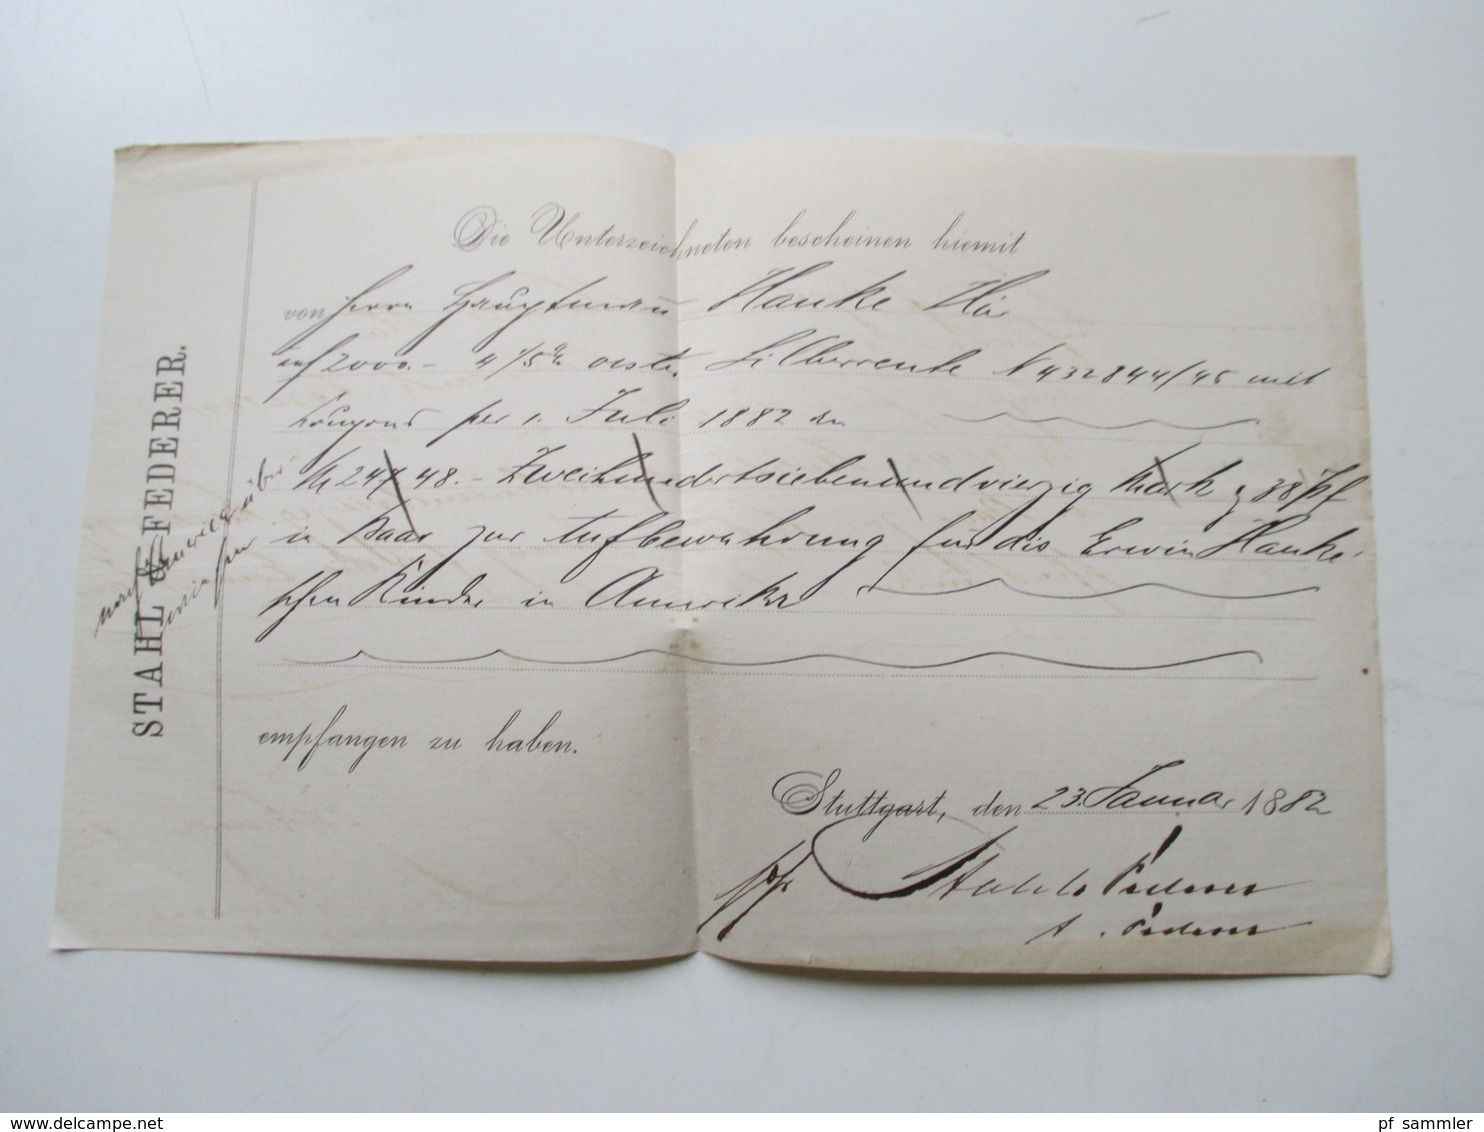 STAHL & FEDERER.
nach Amerika über
wiesen
Die Unterzeichneten bescheinen hiemit
von Herrn Hauptmann Hanke Hier
2000.- 4 1/5% oestr. Silberrente N 432844/45 mit
Coupons per 1. Juli 1882 &
M 247 48. - Zweihundertsiebenundvierzig Mark & 38 Pf
in Baar zur Aufbewahrung für die Erwin Hanke-
schen Kinder in Amerika
empfangen zu haben.
Stuttgart, den 23. Januar 1882
pp Stahl & Federer
Federer
pf sammler - delcampe.net